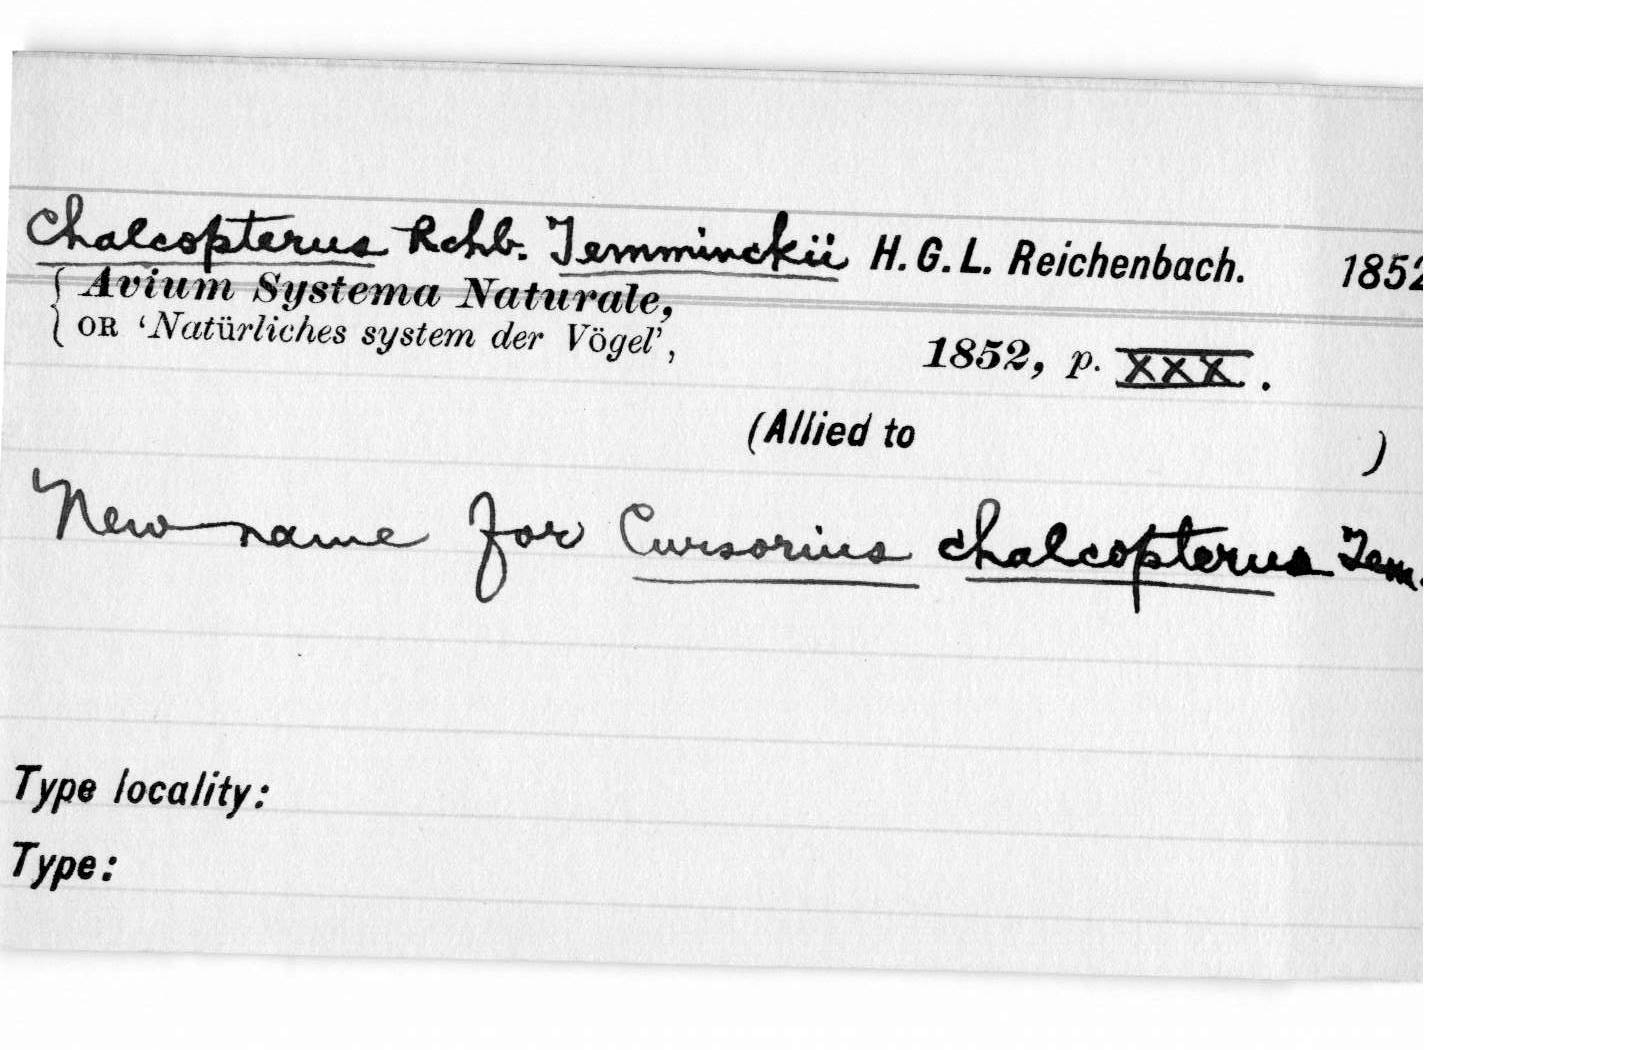 Chalcopterus Rchb. Temminckii H. G. L. Reichenbach. 1852
{ Avium Systema Naturale,
{ OR 'Natürliches system der Vögel', 1852, p. XXX.
(Allied to )
New name for Cursorius chalcopterus Tem.
Type locality:
Type: